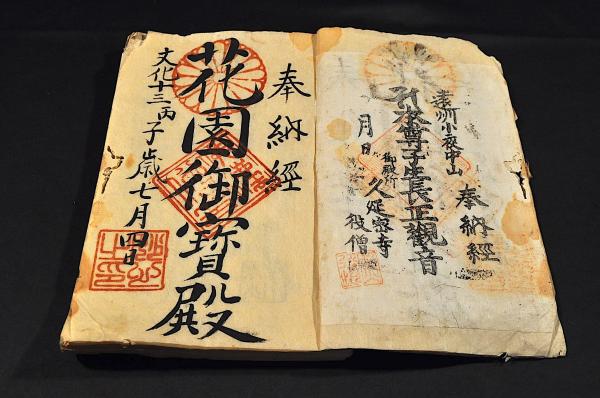 奉納經
遠州小夜中山
尊子生長正觀音
久延寺
月日
役僧
奉納經
花園御寶殿
文化十三丙子歳七月四日